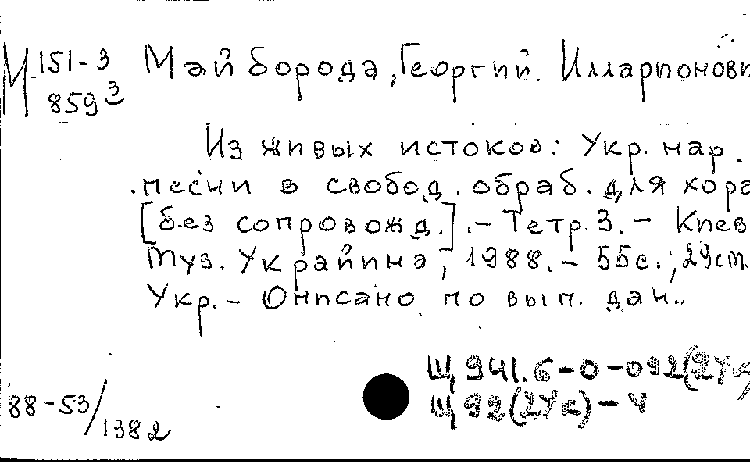 М 151-3 Майборода, Георгий Илларионови
859 3
Из живых истоков: Укр. нар.
песни в свобод. обраб. для хора
[без сопровожд.]. - Тетр. 3. - Киев
Муз. Украйина, 1988. - 55с.; 29см.
Укр. - Описано по вып. дан..
Щ 941.6-0-092(2Ук
88-53/1382
Щ 92(2Ук)-4